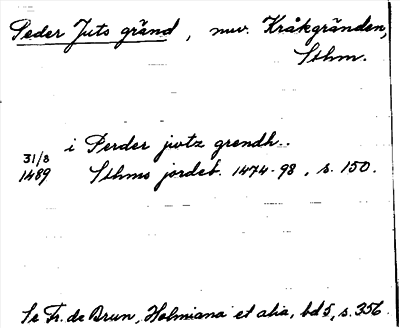 Peder Juts gränd, nuv. Kråkgränden,
Sthm.
i Perder jwtz grendh..
31/8
1489 Sthms jordeb. 1474-98, s. 150.
Se Fr. de Brun, Holmiana et alia, bd 5, s. 356